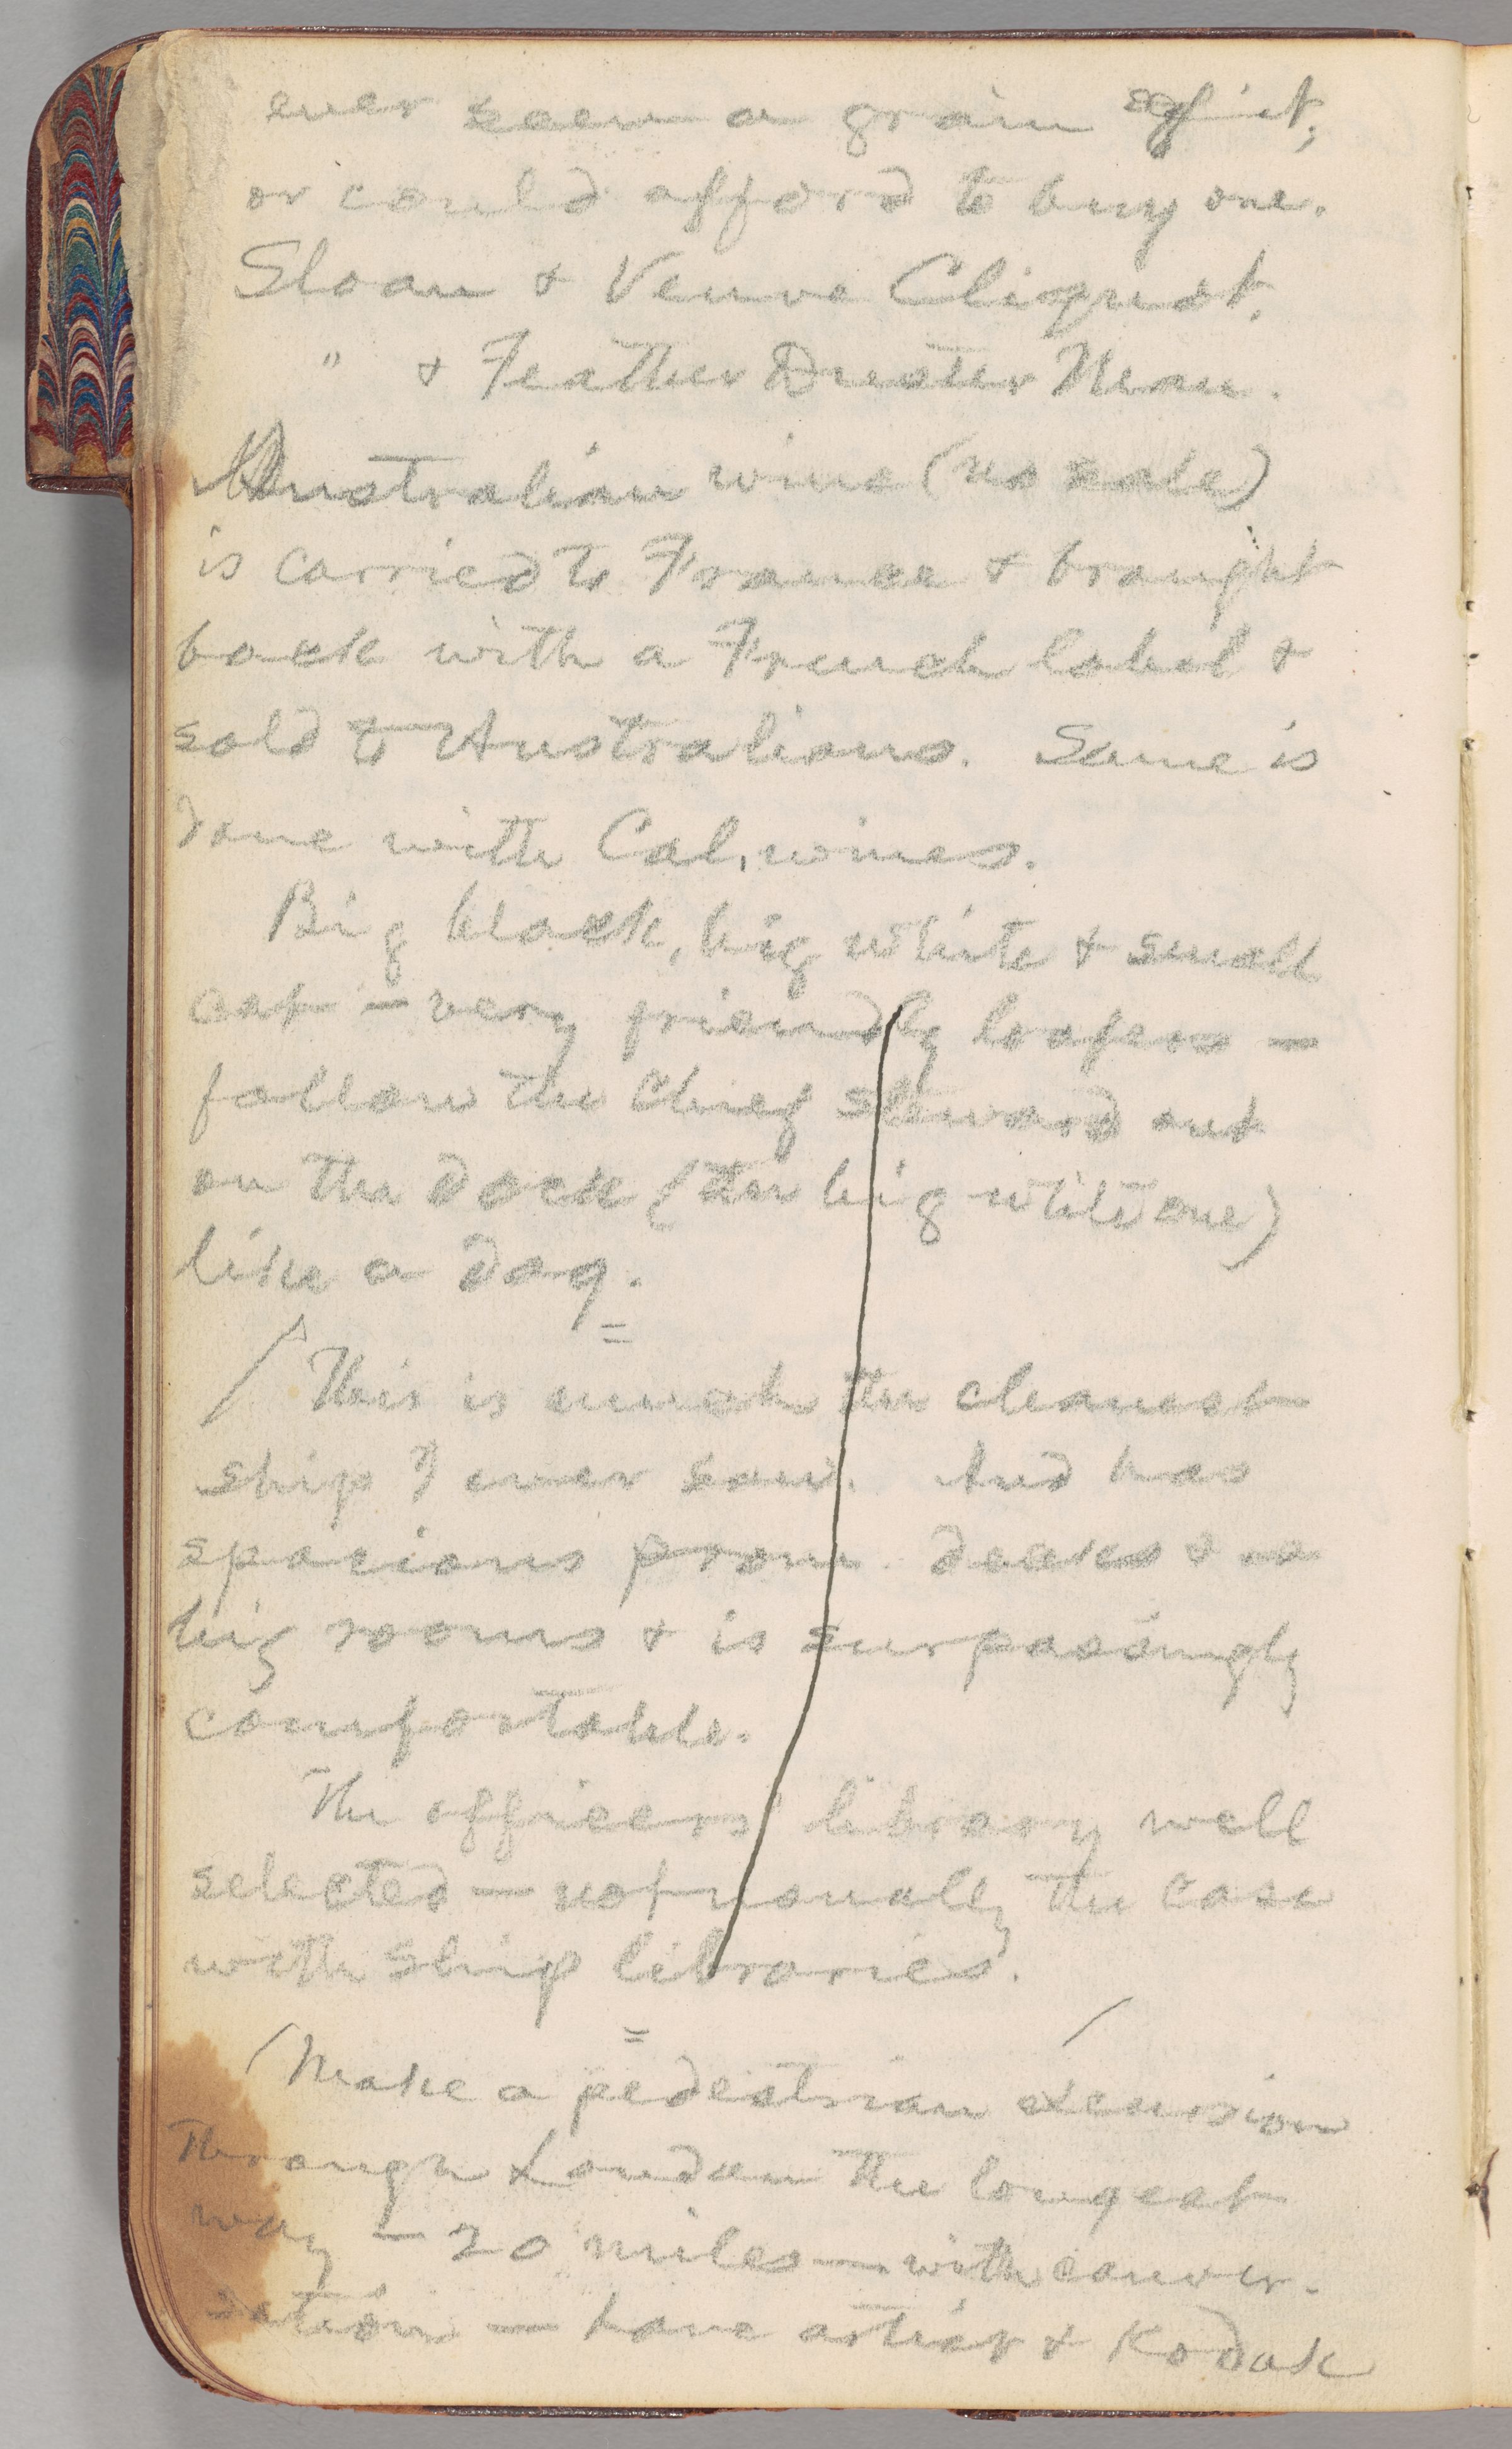 ever seen a grain of it,
or could afford to buy one.
Sloan & Veuve Cliquot.
" & Feather Duster Man.
Australian wine (no sale)
is carried to France & brought
back with a French label &
sold to Australians. Same is
done with Cal. wines.
Big black, big white & small
cat — very friendly loafers —
follow the chief steward out
on the dock (the big white one)
like a dog.
=
This is much the cleanest
ship I ever saw. And has
spacious prom. decks &
big rooms & is surpassingly
comfortable.
The officers' library well
selected — not usually the case
with ship libraries.
=
Make a pedestrian excursion
through London the longest
way — 20 miles — with conver-
sation — have artist & Kodak